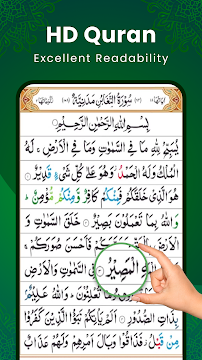 HD Quran
Excellent Readability
سُوْرَةُ التَّغَابُنِ مَدَنِيَّةٌ
بِسْمِ اللّٰهِ الرَّحْمٰنِ الرَّحِيْمِ
يُسَبِّحُ لِلّٰهِ مَا فِي السَّمٰوٰتِ وَمَا فِي الْاَرْضِ لَهُ
الْمُلْكُ وَلَهُ الْحَمْدُ وَهُوَ عَلٰى كُلِّ شَيْءٍ قَدِيْرٌ
هُوَ الَّذِيْ خَلَقَكُمْ فَمِنْكُمْ كَافِرٌ وَّمِنْكُمْ مُّؤْمِنٌ
وَاللّٰهُ بِمَا تَعْمَلُوْنَ بَصِيْرٌ خَلَقَ السَّمٰوٰتِ وَالْاَرْضَ
بِالْحَقِّ وَصَوَّرَكُمْ فَاَحْسَنَ صُوَرَكُمْ
الْمَصِيْرُ فِي السَّمٰوٰتِ وَالْاَرْضِ
تُعْلِنُوْنَ وَاللّٰهُ عَلِيْمٌ
بِذَاتِ الصُّدُوْرِ اَلَمْ يَاْتِكُمْ نَبَؤُا الَّذِيْنَ كَفَرُوْا
مِنْ قَبْلُ فَذَاقُوْا وَبَالَ اَمْرِهِمْ وَلَهُمْ عَذَابٌ